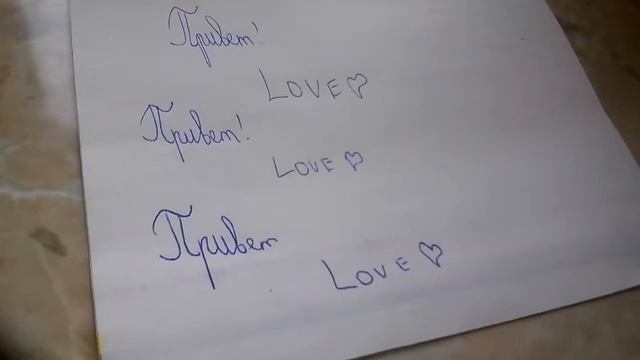 Привет!
LOVE♡
Привет!
LOVE ♡
Привет
LOVE ♡